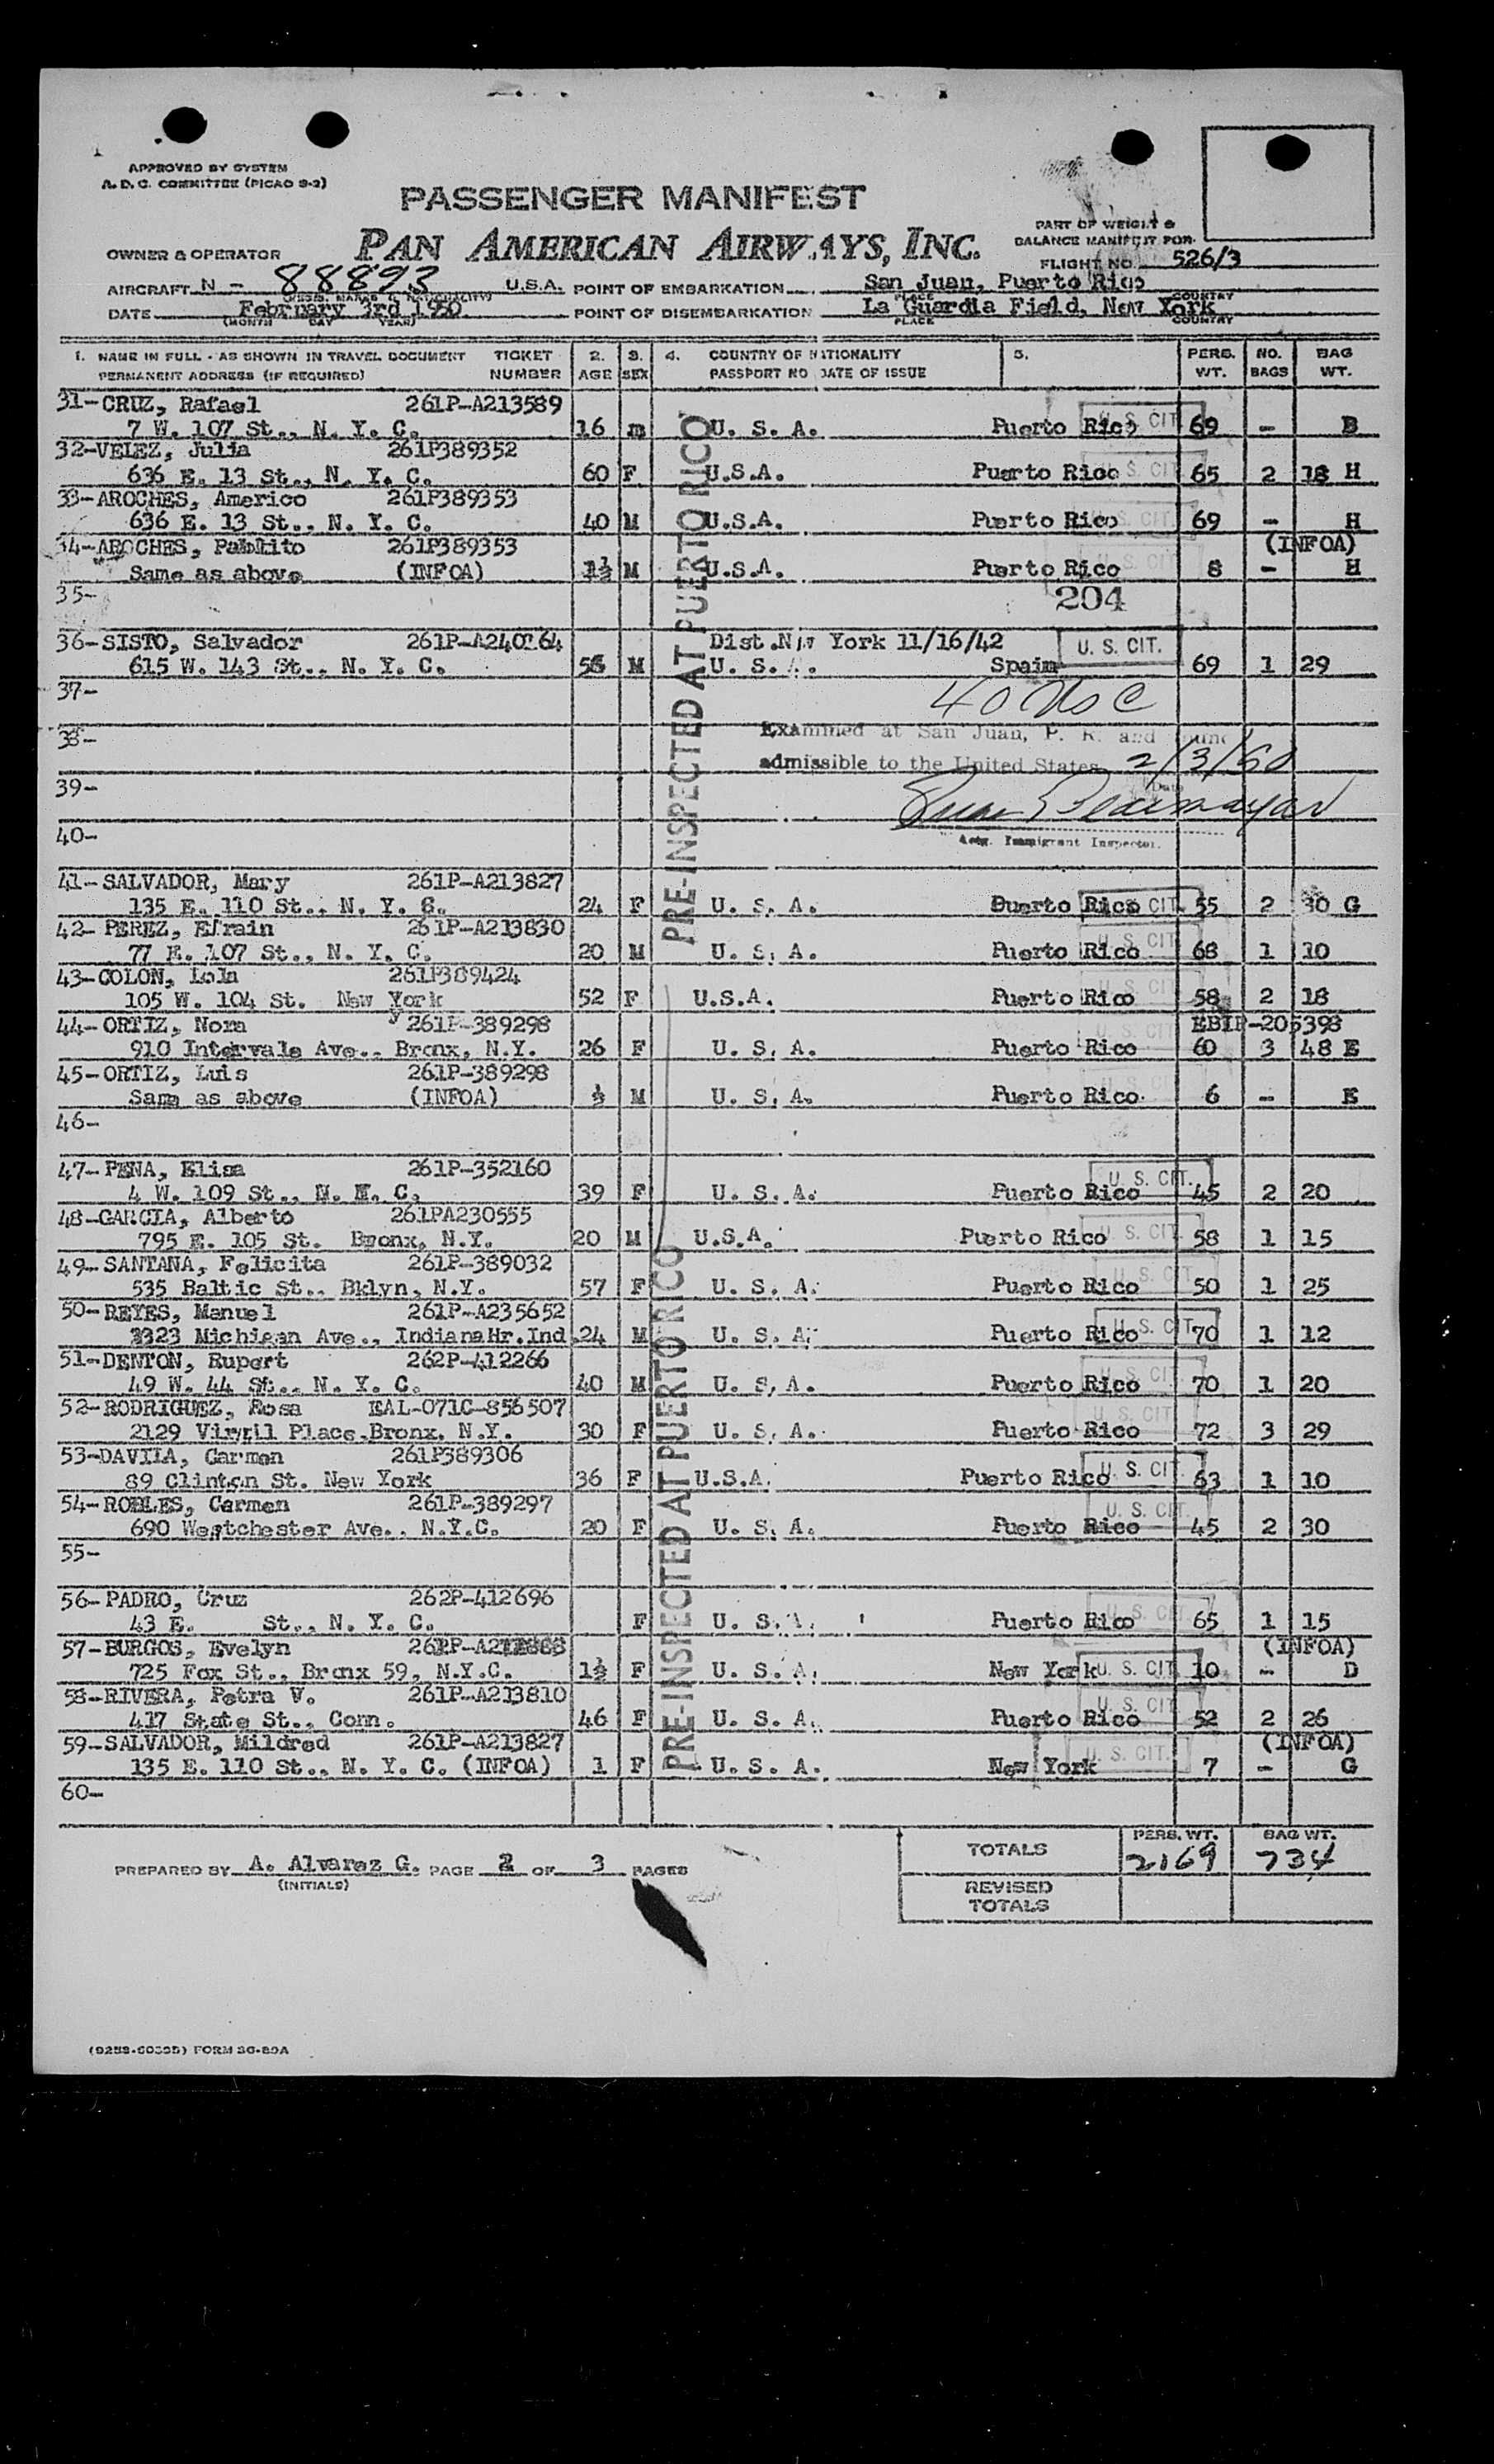 APPROVED BY SYSTEM
A. D. C. COMMITTEE (PICAO 9-2)
PASSENGER MANIFEST
PART OF WEIGHT &
BALANCE MANIFEST FOR
OWNER & OPERATOR PAN AMERICAN AIRWAYS, INC.
FLIGHT NO. 526/3
AIRCRAFT N - 88893 U.S.A. POINT OF EMBARKATION San Juan, Puerto Rico
PLACE COUNTRY
DATE February 3rd 1950 POINT OF DISEMBARKATION La Guardia Field, New York
(MONTH DAY YEAR) PLACE COUNTRY
1. NAME IN FULL - AS SHOWN IN TRAVEL DOCUMENT TICKET 2. 3. 4. COUNTRY OF NATIONALITY 5. PERS. NO. BAG
PERMANENT ADDRESS (IF REQUIRED) NUMBER AGE SEX PASSPORT NO DATE OF ISSUE WT. BAGS WT.
31- CRUZ, Rafael 261P-A213589
7 W. 107 St., N. Y. C. 16 m U. S. A. Puerto Rico U. S. CIT 69 - B
32-VELEZ, Julia 261P389352
636 E. 13 St., N. Y. C. 60 F U.S.A. Puerto Rico S. CIT 65 2 18 H
33-AROCHES, Americo 261P389353
636 E. 13 St., N. Y. C. 40 M U.S.A. Puerto Rico S. CIT. 69 - H
34-AROCHES, Pablito 261P389353 (INFOA)
Same as above (INFOA) 1½ M U.S.A. Puerto Rico S. CIT. 8 - H
35- 204
36-SISTO, Salvador 261P-A240164 Dist. New York 11/16/42 U. S. CIT.
615 W. 143 St., N. Y. C. M U. S. A. Spain 69 1 29
37-
38- Examined at San Juan, P. R. and found
admissible to the United States 2/3/50
39- Date
40- Actg. Immigrant Inspector.
41-SALVADOR, Mary 261P-A213827
135 E. 110 St., N. Y. C. 24 F U. S. A. Puerto Rico CIT. 55 2 30 G
42- PEREZ, Efrain 261P-A213830
77 E. 107 St., N. Y. C. 20 M U. S. A. Puerto Rico S. CIT 68 1 10
43-COLON, Lola 261P389424
105 W. 104 St. New York 52 F U.S.A. Puerto Rico S. CIT 58 2 18
44- ORTIZ, Nora 261P-389298 U. S. CIT
910 Intervale Ave., Bronx, N.Y. 26 F U. S. A. Puerto Rico 60 3 48 E
45-ORTIZ, Luis 261P-389298
Same as above (INFOA) ½ M U. S. A. Puerto Rico 6 - E
46-
47- PENA, Elisa 261P-352160 U. S. CIT.
4 W. 109 St., 39 F U. S. A. Puerto Rico 45 2 20
48-GARCIA, Alberto 261PA230555
795 E. 105 St. Bronx, N.Y. 20 M U.S.A. Puerto Rico U. S. CIT 58 1 15
49-SANTANA, Felicita 261P-389032
535 Baltic St., Bklyn, N.Y. 57 F U. S. A. Puerto Rico 50 1 25
50-REYES, Manuel 261P-A235652
3323 Michigan Ave., IndianaHr.Ind. 24 M U. S. A. Puerto Rico U. S. CIT 70 1 12
51-DENTON, Rupert 262P-412266
49 W. 44 St., N. Y. C. 40 M U. S. A. Puerto Rico 70 1 20
52-RODRIGUEZ, Rosa EAL-071C-856507 U. S. CIT
2129 Place, Bronx, N.Y. 30 F U. S. A. Puerto Rico 72 3 29
53-DAVILA, Carmen 261P389306
89 Clinton St. New York 36 F U.S.A. Puerto Rico U. S. CIT. 63 1 10
54-ROBLES, Carmen 261P-389297 U. S. CIT.
690 Westchester Ave., N.Y.C. 20 F U. S. A. Puerto Rico 45 2 30
55-
56-PADRO, Cruz 262P-412696
43 E. St., N. Y. C. F U. S. A. Puerto Rico 65 1 15
57-BURGOS, Evelyn (INFOA)
725 Fox St., Bronx 59, N.Y.C. 1½ F U. S. A. New York U. S. CIT 10 - D
58-RIVERA, Petra V. 261P-A213810 U. S. CIT
417 State St., Conn. 46 F U. S. A. Puerto Rico 52 2 26
59-SALVADOR, Mildred 261P-A213827 (INFOA)
135 E. 110 St., N. Y. C. (INFOA) 1 F U. S. A. New York U. S. CIT. 7 - G
60-
PRE-INSPECTED AT PUERTO RICO
PRE-INSPECTED AT PUERTO RICO
TOTALS PERS. WT. BAG WT.
2169 734
PREPARED BY A. Alvarez G. PAGE 2 OF 3 PAGES
(INITIALS)
REVISED
TOTALS
FORM